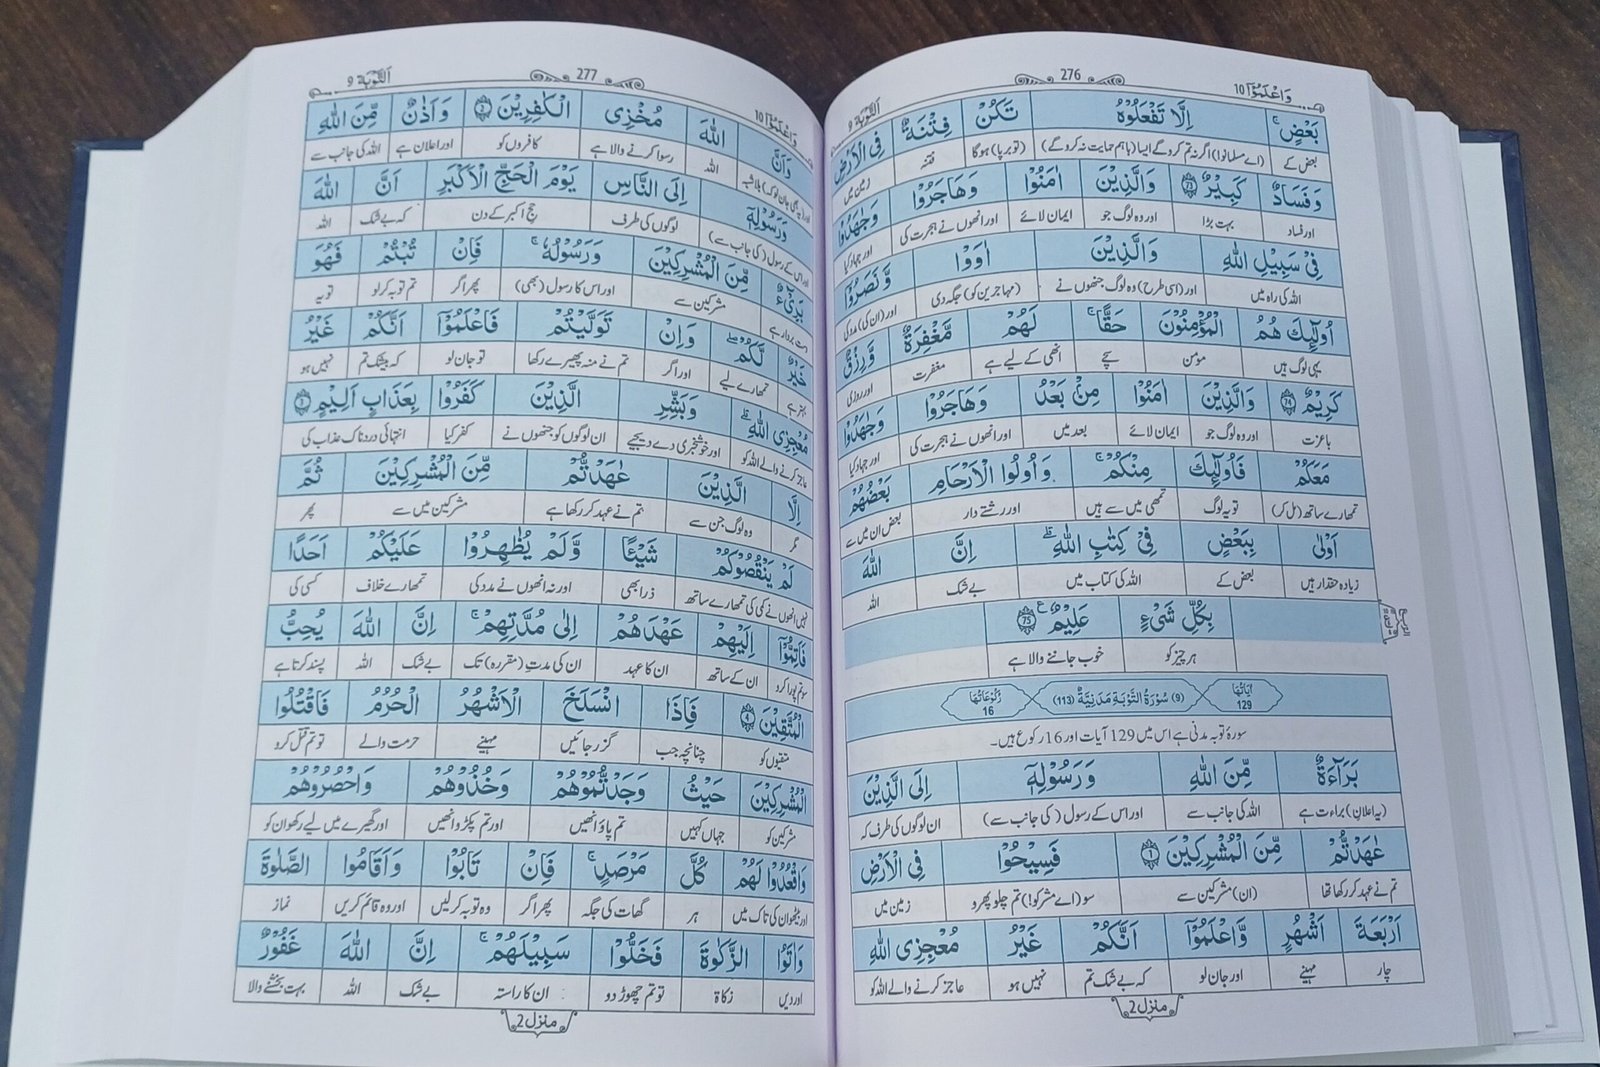 وَاعْلَمُوْٓا 10
276
اَلتَّوْبَة 9
بَعْضٍ ۚ اِلَّا تَفْعَلُوْهُ تَكُنْ فِتْنَةٌ فِي الْاَرْضِ
بعض کے (اے مسلمانو!) اگر نہ تم کرو گے ایسا (باہم حمایت نہ کرو گے) (تو برپا) ہوگا فتنہ زمین میں
وَفَسَادٌ كَبِيْرٌ 73 وَالَّذِيْنَ اٰمَنُوْا وَهَاجَرُوْا وَجٰهَدُوْا
اور فساد بہت بڑا اور وہ لوگ جو ایمان لائے اور انھوں نے ہجرت کی اور جہاد کیا
فِيْ سَبِيْلِ اللّٰهِ وَالَّذِيْنَ اٰوَوْا وَّنَصَرُوْٓا
اللہ کی راہ میں اور (اسی طرح) وہ لوگ جنھوں نے (مہاجرین کو) جگہ دی اور (ان کی) مدد کی
اُولٰٓئِكَ هُمُ الْمُؤْمِنُوْنَ حَقًّا ۚ لَهُمْ مَّغْفِرَةٌ وَّرِزْقٌ
یہی لوگ ہیں مومن سچے انھی کے لیے ہے مغفرت اور روزی
كَرِيْمٌ 74 وَالَّذِيْنَ اٰمَنُوْا مِنْۢ بَعْدُ وَهَاجَرُوْا وَجٰهَدُوْا
باعزت اور وہ لوگ جو ایمان لائے بعد میں اور انھوں نے ہجرت کی اور جہاد کیا
مَعَكُمْ فَاُولٰٓئِكَ مِنْكُمْ ۚ وَاُولُوا الْاَرْحَامِ بَعْضُهُمْ
تمھارے ساتھ (مل کر) تو یہ لوگ تمھی میں سے ہیں اور رشتے دار بعض ان میں سے
اَوْلٰى بِبَعْضٍ فِيْ كِتٰبِ اللّٰهِ ۗ اِنَّ اللّٰهَ
زیادہ حقدار ہیں بعض کے اللہ کی کتاب میں بے شک اللہ
بِكُلِّ شَيْءٍ عَلِيْمٌ 75
ہر چیز کو خوب جاننے والا ہے
اٰيَاتُهَا 129 (9) سُوْرَةُ التَّوْبَةِ مَدَنِيَّةٌ (113) رُكُوْعَاتُهَا 16
سورۂ توبہ مدنی ہے اس میں 129 آیات اور 16 رکوع ہیں۔
بَرَآءَةٌ مِّنَ اللّٰهِ وَرَسُوْلِهٖٓ اِلَى الَّذِيْنَ
(یہ اعلانِ) براءت ہے اللہ کی جانب سے اور اس کے رسول (کی جانب سے) ان لوگوں کی طرف کہ
عٰهَدْتُّمْ مِّنَ الْمُشْرِكِيْنَ 1 فَسِيْحُوْا فِي الْاَرْضِ
تم نے عہد کر رکھا تھا (ان) مشرکین سے سو (اے مشرکو!) تم چلو پھرو زمین میں
اَرْبَعَةَ اَشْهُرٍ وَّاعْلَمُوْٓا اَنَّكُمْ غَيْرُ مُعْجِزِي اللّٰهِ
چار مہینے اور جان لو کہ بے شک تم نہیں ہو عاجز کرنے والے اللہ کو
منزل 2
وَاعْلَمُوْٓا 10
277
اَلتَّوْبَة 9
وَاَنَّ اللّٰهَ مُخْزِي الْكٰفِرِيْنَ 2 وَاَذَانٌ مِّنَ اللّٰهِ
اور (یہ بھی جان لو کہ) بلاشبہ اللہ رسوا کرنے والا ہے کافروں کو اور اعلان ہے اللہ کی جانب سے
وَرَسُوْلِهٖٓ اِلَى النَّاسِ يَوْمَ الْحَجِّ الْاَكْبَرِ اَنَّ اللّٰهَ
اور اس کے رسول (کی جانب سے) لوگوں کی طرف حج اکبر کے دن کہ بے شک اللہ
بَرِيْٓءٌ مِّنَ الْمُشْرِكِيْنَ وَرَسُوْلُهٗ ۚ فَاِنْ تُبْتُمْ فَهُوَ
دست بردار ہے مشرکین سے اور اس کا رسول (بھی) پھر اگر تم توبہ کرلو تو یہ
خَيْرٌ لَّكُمْ ۚ وَاِنْ تَوَلَّيْتُمْ فَاعْلَمُوْٓا اَنَّكُمْ غَيْرُ
بہتر ہے تمھارے لیے اور اگر تم نے منہ پھیرے رکھا تو جان لو کہ بیشک تم نہیں ہو
مُعْجِزِي اللّٰهِ ۗ وَبَشِّرِ الَّذِيْنَ كَفَرُوْا بِعَذَابٍ اَلِيْمٍ 3
عاجز کرنے والے اللہ کو اور خوشخبری دے دیجیے ان لوگوں کو جنھوں نے کفر کیا انتہائی دردناک عذاب کی
اِلَّا الَّذِيْنَ عٰهَدْتُّمْ مِّنَ الْمُشْرِكِيْنَ ثُمَّ
مگر وہ لوگ جن سے تم نے عہد کر رکھا ہے مشرکین میں سے پھر
لَمْ يَنْقُصُوْكُمْ شَيْـًٔا وَّلَمْ يُظَاهِرُوْا عَلَيْكُمْ اَحَدًا
نہیں انھوں نے کمی کی تمھارے ساتھ ذرا بھی اور نہ انھوں نے مدد کی تمھارے خلاف کسی کی
فَاَتِمُّوْٓا اِلَيْهِمْ عَهْدَهُمْ اِلٰى مُدَّتِهِمْ ۚ اِنَّ اللّٰهَ يُحِبُّ
سو تم پورا کرو ان کے ساتھ ان کا عہد ان کی مدت (مقررہ) تک بے شک اللہ پسند کرتا ہے
الْمُتَّقِيْنَ 4 فَاِذَا انْسَلَخَ الْاَشْهُرُ الْحُرُمُ فَاقْتُلُوا
متقیوں کو چنانچہ جب گزر جائیں مہینے حرمت والے تو تم قتل کرو
الْمُشْرِكِيْنَ حَيْثُ وَجَدْتُّمُوْهُمْ وَخُذُوْهُمْ وَاحْصُرُوْهُمْ
مشرکین کو جہاں کہیں تم پاؤ انھیں اور تم پکڑو انھیں اور گھیرے میں لیے رکھو ان کو
وَاقْعُدُوْا لَهُمْ كُلَّ مَرْصَدٍ ۚ فَاِنْ تَابُوْا وَاَقَامُوا الصَّلٰوةَ
اور بیٹھو ان کی تاک میں ہر گھات کی جگہ پھر اگر وہ توبہ کرلیں اور وہ قائم کریں نماز
وَاٰتَوُا الزَّكٰوةَ فَخَلُّوْا سَبِيْلَهُمْ ۚ اِنَّ اللّٰهَ غَفُوْرٌ
اور دیں زکاۃ تو تم چھوڑ دو ان کا راستہ بے شک اللہ بہت بخشنے والا
منزل 2